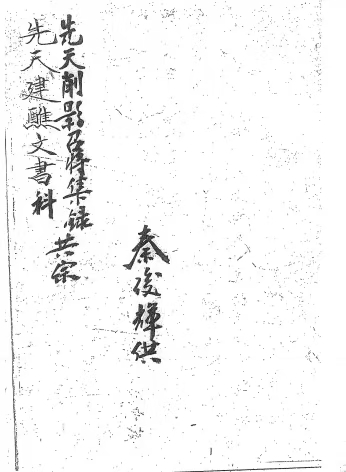 秦俊輝供
先天削影召將集錄共宗
先天建醮文書科